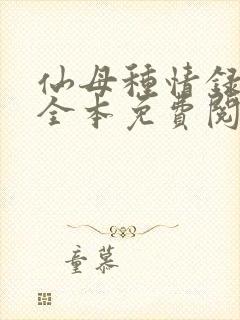 仙母種情録
全本免費閱
童慕